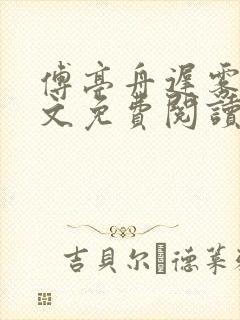 傅亭舟遲雾
文免費閱讀
吉貝尔德菜